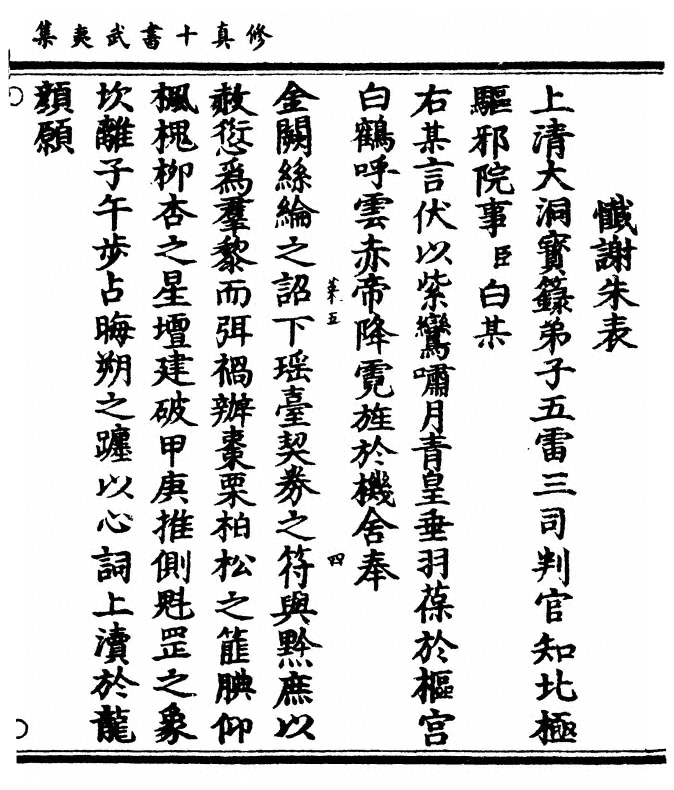 修真十書武夷集
懺謝朱表
上清大洞寶籙弟子五雷三司判官知北極
驅邪院事臣白某
右某言伏以紫鸞嘯月青皇垂羽葆於樞宮
白鶴呼雲赤帝降霓旌於機舍奉
菜五 四
金闕絲綸之詔下瑤臺契券之符與黔庶以
赦愆爲羣黎而弭禍辦棗栗柏松之篚腆仰
楓槐柳杏之星壇建破甲庚推側魁罡之象
坎離子午步占晦朔之躔以心詞上瀆於龍
顏願